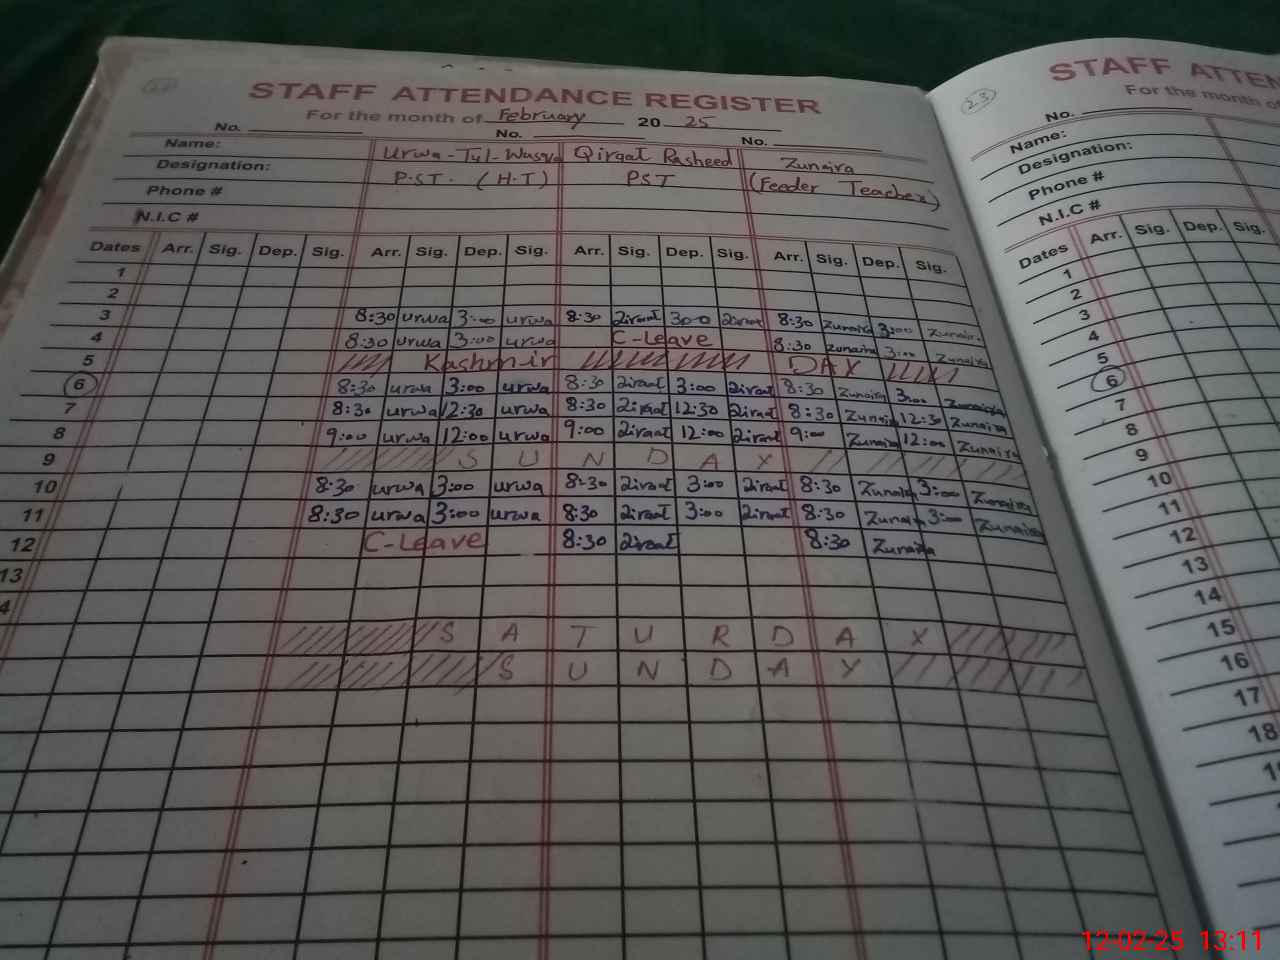 22
STAFF ATTENDANCE REGISTER
For the month of February 2025
No. No. No.
Name: Urwa-Tul-Wusqa Qirqat Rasheed Zunaira
Designation: P.S.T. (H.T) PST (Feeder Teacher)
Phone #
N.I.C #
Dates Arr. Sig. Dep. Sig. Arr. Sig. Dep. Sig. Arr. Sig. Dep. Sig. Arr. Sig. Dep. Sig.
1
2
3 8:30 urwa 3:00 urwa 8:30 2iraat 300 2iraat 8:30 Zunaira 3:00 Zunaira
4 8:30 urwa 3:00 urwa C-Leave 8:30 Zunaira 3:00 Zunaira
5 Kashmir DAY
6 8:30 urwa 3:00 urwa 8:30 2iraat 3:00 2iraat 8:30 Zunaira 3:00 Zunaira
7 8:30 urwa 12:30 urwa 8:30 2iraat 12:30 2iraat 8:30 Zunaira 12:30 Zunaira
8 9:00 urwa 12:00 urwa 9:00 2iraat 12:00 2iraat 9:00 Zunaira 12:00 Zunaira
9 SUNDAY
10 8:30 urwa 3:00 urwa 8:30 2iraat 3:00 2iraat 8:30 Zunaira 3:00 Zunaira
11 8:30 urwa 3:00 urwa 8:30 2iraat 3:00 2iraat 8:30 Zunaira 3:00 Zunaira
12 C-Leave 8:30 2iraat 8:30 Zunaira
13
4
SATURDAY
SUNDAY
23
STAFF ATTEN
For the month of
No.
Name:
Designation:
Phone #
N.I.C #
Dates Arr. Sig. Dep. Sig.
1
2
3
4
5
6
7
8
9
10
11
12
13
14
15
16
17
18
12-02-25 13:11